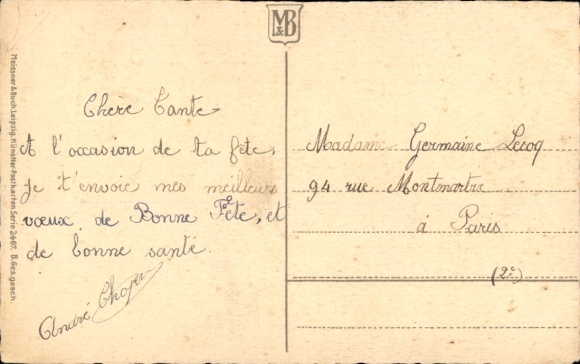 M&B
Meissner & Buch, Leipzig, Künstler-Postkarten Serie 2467. B. Ges. gesch.
Chere Tante
A l'occasion de ta fête,
je t'envoie mes meilleurs
vœux de Bonne Fête, et
de bonne santé.
André
Madame Germaine Lecoq
94 rue Montmartre
à Paris
(2e)